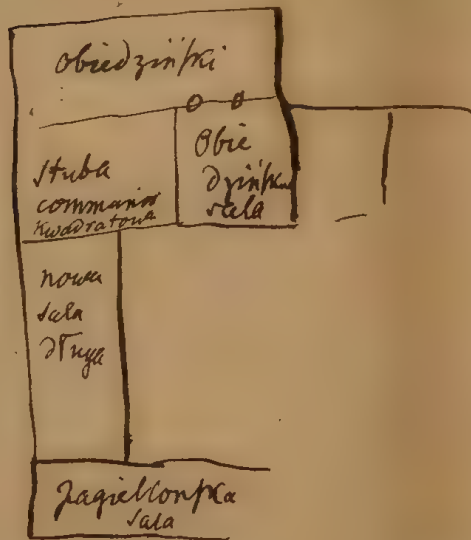 obiedzińſki
Stuba
communis
Kwadratowa
Obie
dzińſka
sala
nowa
sala
długa
Jagiellonſka
sala